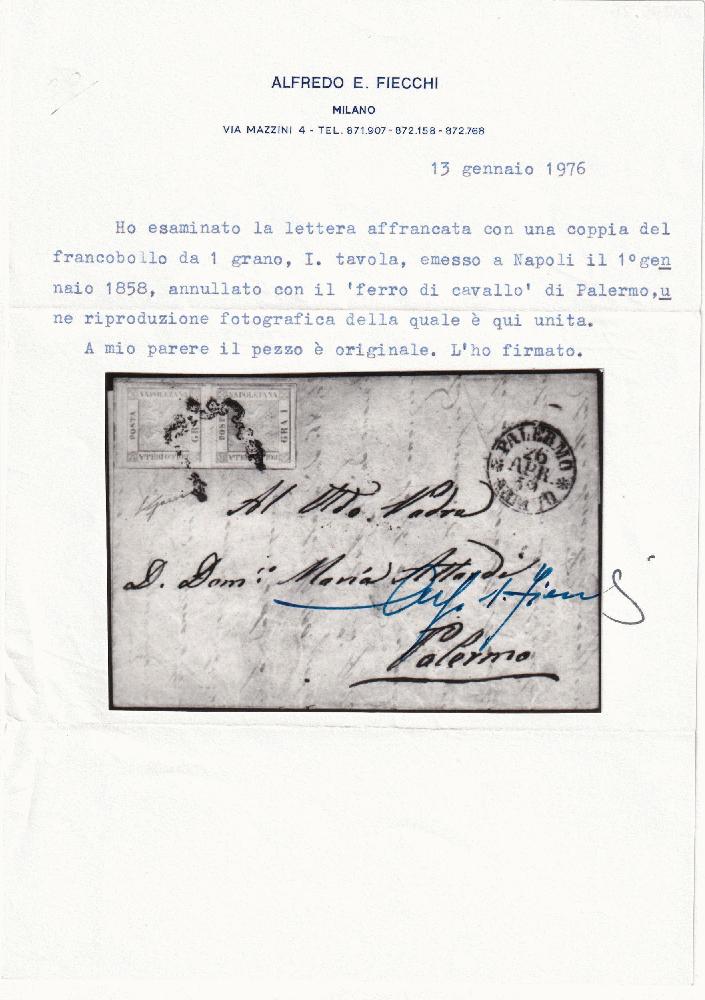 ALFREDO E. FIECCHI
MILANO
VIA MAZZINI 4 - TEL. 871.907 - 872.158 - 872.768
13 gennaio 1976
Ho esaminato la lettera affrancata con una coppia del
francobollo da 1 grano, I. tavola, emesso a Napoli il 1° gen
naio 1858, annullato con il 'ferro di cavallo' di Palermo, u
ne riproduzione fotografica della quale è qui unita.
A mio parere il pezzo è originale. L'ho firmato.
POSTA NAPOLETANA GRA 1
POSTA NAPOLETANA GRA 1
PALERMO
26
APR
Al
D. Dom.
Maria
Palermo